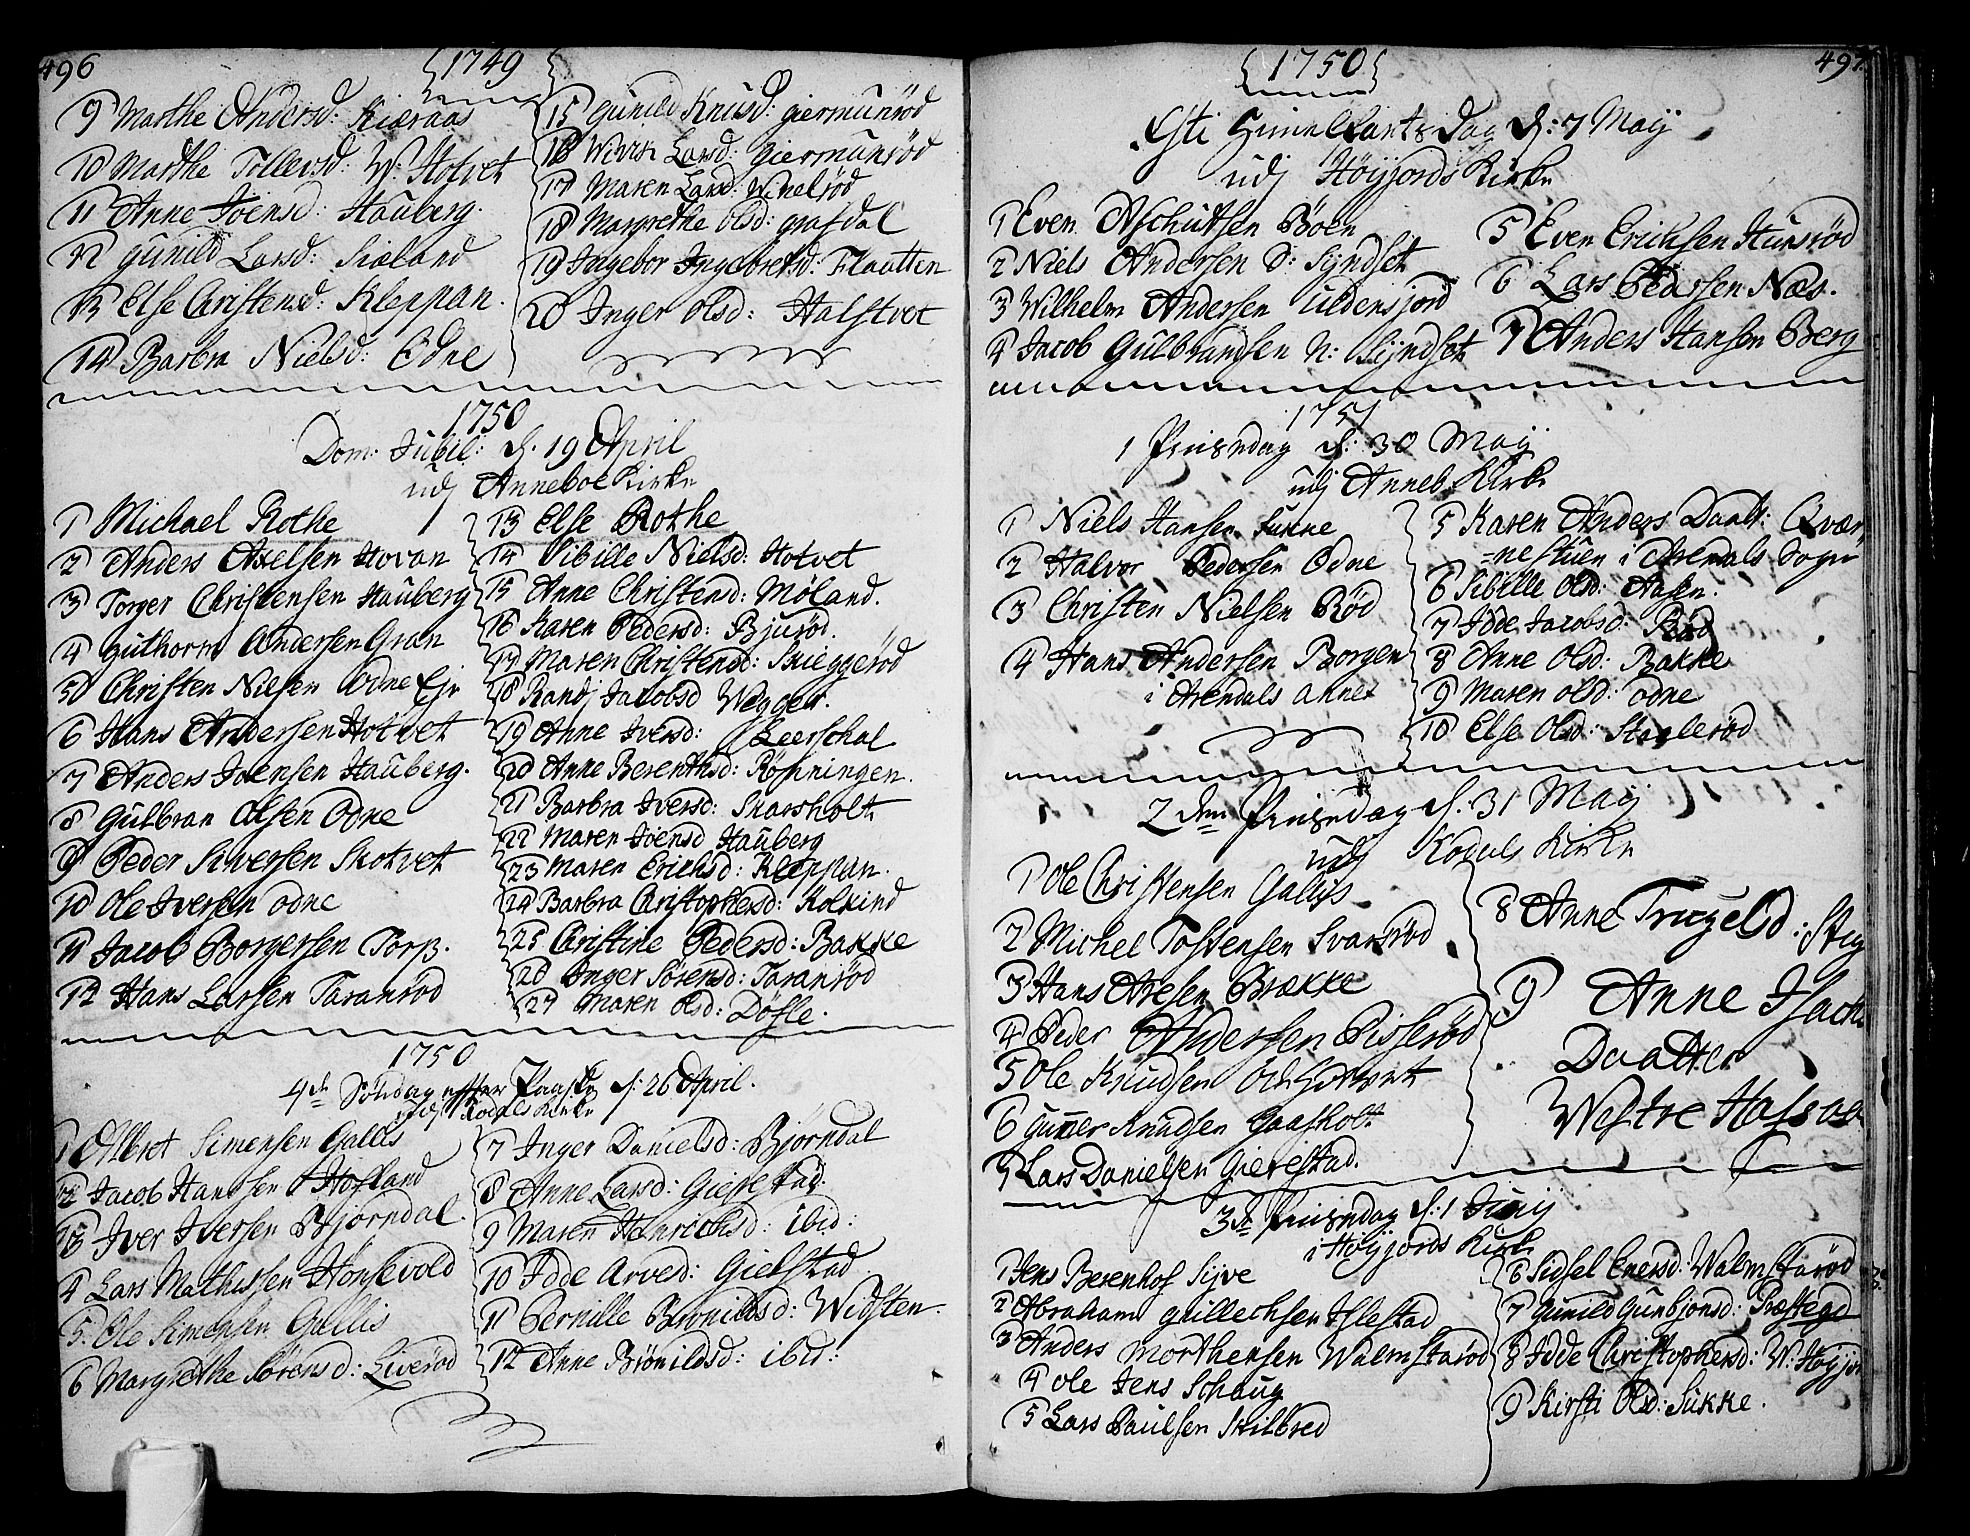 496
1749
9 Marthe Andersd: Kiæraas
10 Marthe Tollersd: W: Hotvet
11 Anne Joensd: Hauberg.
12 Gunild Larsd: Siæland
13 Else Christensd: Kleppan.
14 Barbra Nielsd: Odne
15 Gunild Knusd: Giermunrød
16 Larsd: Giermunrød
17 Maren Larsd: Winelrød
18 Margrethe Olsd: grafdal
19 Ingebor Ingebretsd: Flautten
20 Inger Olsd: Halstvet
1750
Dom: Jubil: d. 19 April
udj Anneboe Kirke
1 Michael Rothe
2 Anders Axelsen Hovan
3 Torger Christensen Hauberg
4 Guthorm Andersen Gran
5 Christen Nielsen Odne Ejr
6 Hans Andersen Hotvet
7 Anders Joensen Hauberg.
8 Gulbran Olsen Odne
9 Peder Siversen Skotvet
10 Ole Iversen Odne
11 Jacob Borgersen Torp.
12 Hans Larsen Taranrød
13 Else Rothe
14 Sibille Nielsd: Hotvet
15 Anne Christensd: Møland.
16 Karen Pedersd: Bjurød.
17 Maren Christensd: Skieggerød
18 Randj Jacobsd Wegger.
19 Anne Iversd: Leerskal
20 Anne Berenthsd: Røsningen.
21 Barbra Iversd: Skarsholt
22 Maren Joensd Hauberg
23 Maren Erichsd: Kleppan.
24 Barbra Christophersd: Kolkind
25 Christine Pedersd: Bakke
26 Inger Sørensd: Taranrød
27 Maren Olsd: Døfle.
1750
4de Søndag effter Paaske d: 26 April.
udj Kodals Kirke
1 Albret Simensen Gallis
2 Jacob Hansen Hofland
3 Iver Iversen Bjørndal.
4 Lars Mathissen Hønsvold
5. Ole Simensen Gallis
6 Margrethe Sørensd: Liverød
7 Inger Danielsd: Bjørndal
8 Anne Larsd: Gierestad.
9 Maren Henrichsd: ibid:
10 Idde Arved: Gielstad.
11 Pernille Brønildsd: Widsten.
12 Anne Brønildsd: ibid:
1750
497.
Christi Himelfarts Dag d: 7 Maij
udj Høyjords Kirke
1 Even Aschutsen Bøen
2 Niels Andersen S: Syndset
3 Wilhelm Andersen Uldensjord
4 Jacob Gulbrandsen N: Syndset
5 Even Ericksen Hunsrød
6 Lars Pedersen Næs.
7 Anders Hansen Berg
1751
1 Pinsedag d: 30 Maij
udj Anneb: Kirke
1 Niels Hansen Sunne
2 Halvor Pedersen Odne
3 Christen Nielsen Rød
4 Hans Andersen Borgen
i Arendals annex
5 Karen Anders Daatr: Qvær
=nestuen i Arendals Sogn
6 Sibille Olsd: Aasen.
7 Idde Jacobsd: Rød
8 Anne Olsd: Bakke
9 Maren Olsd: Odne
10 Else Olsd: Staalerød
2den Pinsedag d. 31 Maij
udj Kodals Kirke
1 Ole Christensen Gallis
2 Michel Tostensen Svarsrød
3 Hans Aresen Brække
4 Peder Andersen Pisserød
5 Ole Knudsen
6 Gunner Knudsen Gaasholt
7 Lars Danielsen Gierestad.
8 Anne Trugelsd: Stig
9 Anne Isach
Daatter
Westre Hasaas
3de Pinsedag d: 1 Junij
i Høyjords Kirke
1 Jens Berenhof Sijve
2 Abraham Guillechsen Islestad
3 Anders Morthensen Walmstarød
4 Ole Jens Schaug
5 Lars Paulsen Skilbred
6 Sidsel Enersd: Walmstarød
7 Gunild Gunbjønsd: Præstegd
8 Idde Christophersd: W: Høyjor
9 Kirsti Olsd: Sukke.